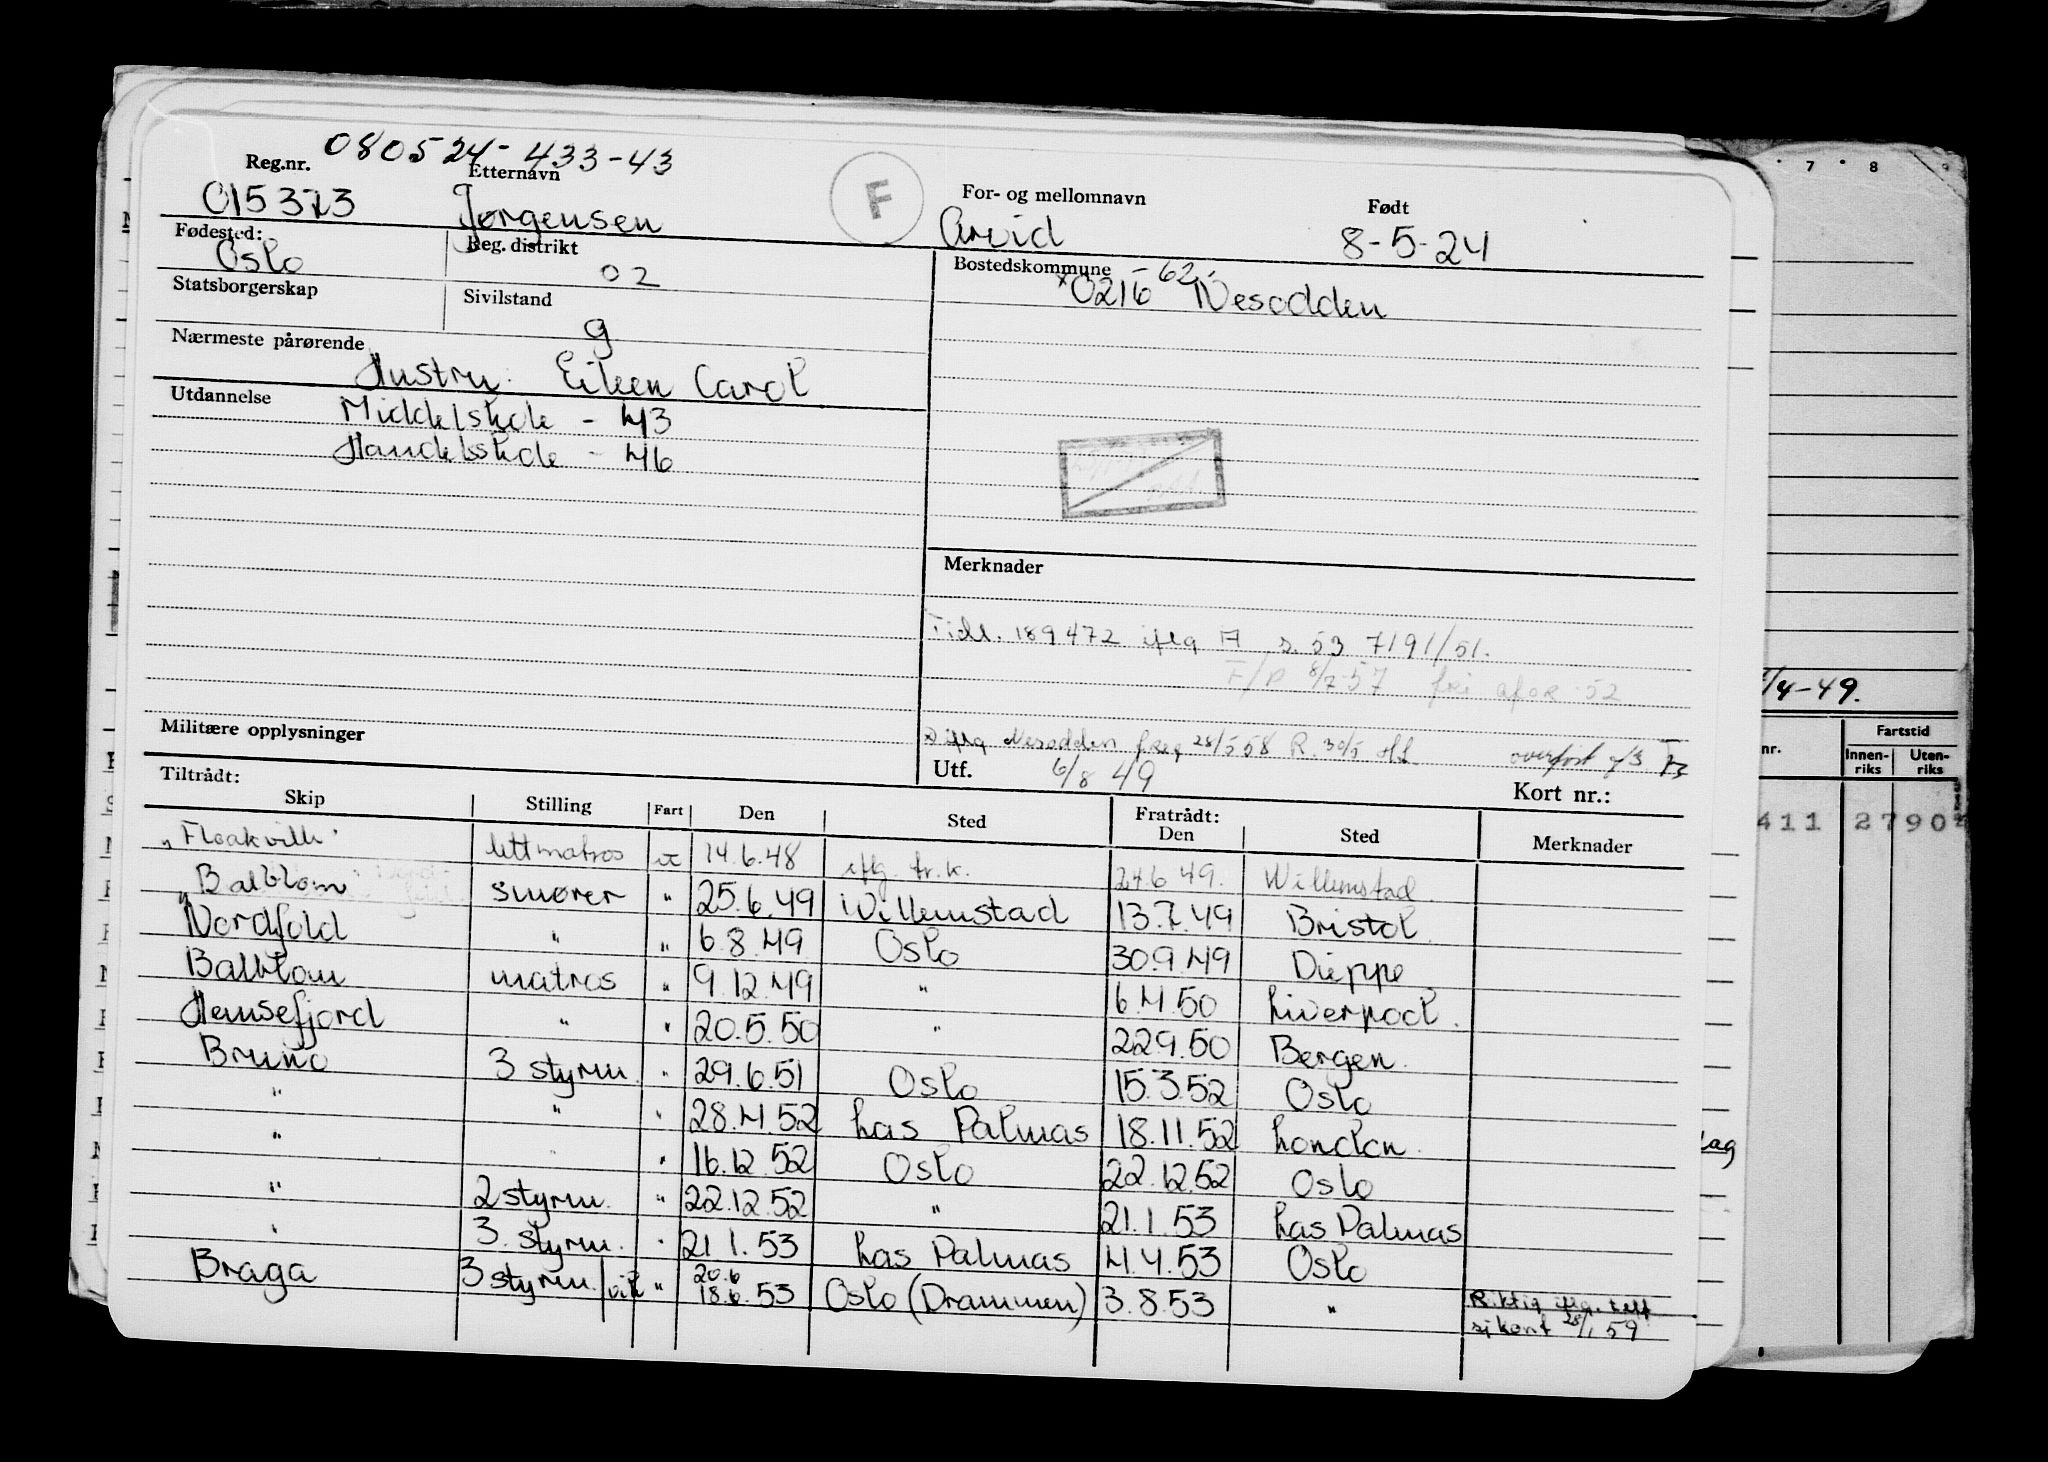 080524-433-43
Reg.nr. Etternavn F For- og mellomnavn Født
015373 Jørgensen Arvid 8-5-24
Fødested: Oslo Reg. distrikt 02 Bostedskommune
*0216 -62- Nesodden
Statsborgerskap Sivilstand g
Nærmeste pårørende Hustru. Eileen Carol
Utdannelse Middelskole - 43
Handelsskole - 46
Merknader
Tidl. 189472 iflg A s. 53 7191/51.
F/P 8/7-57 fri 52
iflg Nesodden freg 28/5 58 R. 30/5 overført
Militære opplysninger
Utf. 6/8 49 Kort nr.:
Tiltrådt: Fratrådt:
Skip Stilling Fart Den Sted Den Sted Merknader
lettmatros 14.6.48 iflg. fr.k. 24.6 49. Willemstad
" Balblom smører " 25.6.49 Willemstad 13.7.49 Bristol
Nordfold " " 6.8.49 Oslo 30.9.49 Dieppe
Balblom matros " 9.12.49 " 6.4.50 Liverpool.
Hemsefjord " " 20.5.50 " 22.9.50 Bergen.
Bruno 3 styrm. " 29.6.51 Oslo 15.3.52 Oslo
" " " 28.4.52 Las Palmas 18.11.52 London.
" " " 16.12.52 Oslo 22.12.52 Oslo
" 2 styrm. " 22.12.52 " 21.1.53 Las Palmas
" 3. styrm. " 21.1.53 Las Palmas 4.4.53 Oslo
Braga 3 styrm./vik " 20.6 18.6.53 Oslo (Drammen) 3.8.53 " Riktig iflg. telf
sj kont 28/1 59
7 8 9
/4-49.
nr. Fartstid
Innenriks Utenriks
411 2790
lag